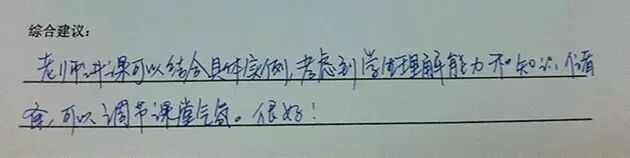 综合建议:
老师讲课可以结合具体实例,考虑到学生理解能力和知识储备
含,可以调节课堂气氛。很好!